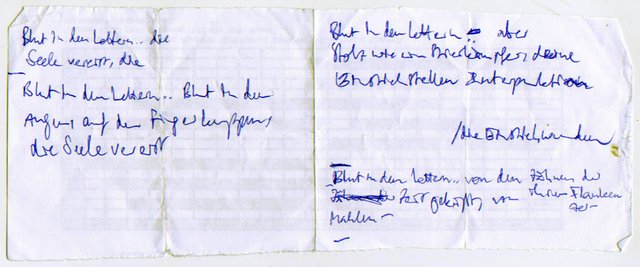 Blut in den Lettern.. die
Seele vereist, die
Blut in den Lettern.. Blut in den
Augen auf den Fingerkuppen
die Seele vereist
Blut in den Lettern aber
Stolz wie ein Preiskämpfer, deine
Einstichstellen Interpunktion
/die Einstichwunden
Blut in den Lettern.. von den Zähnen der
Zeit geküsst, von ihren Flanken
Mahlen –